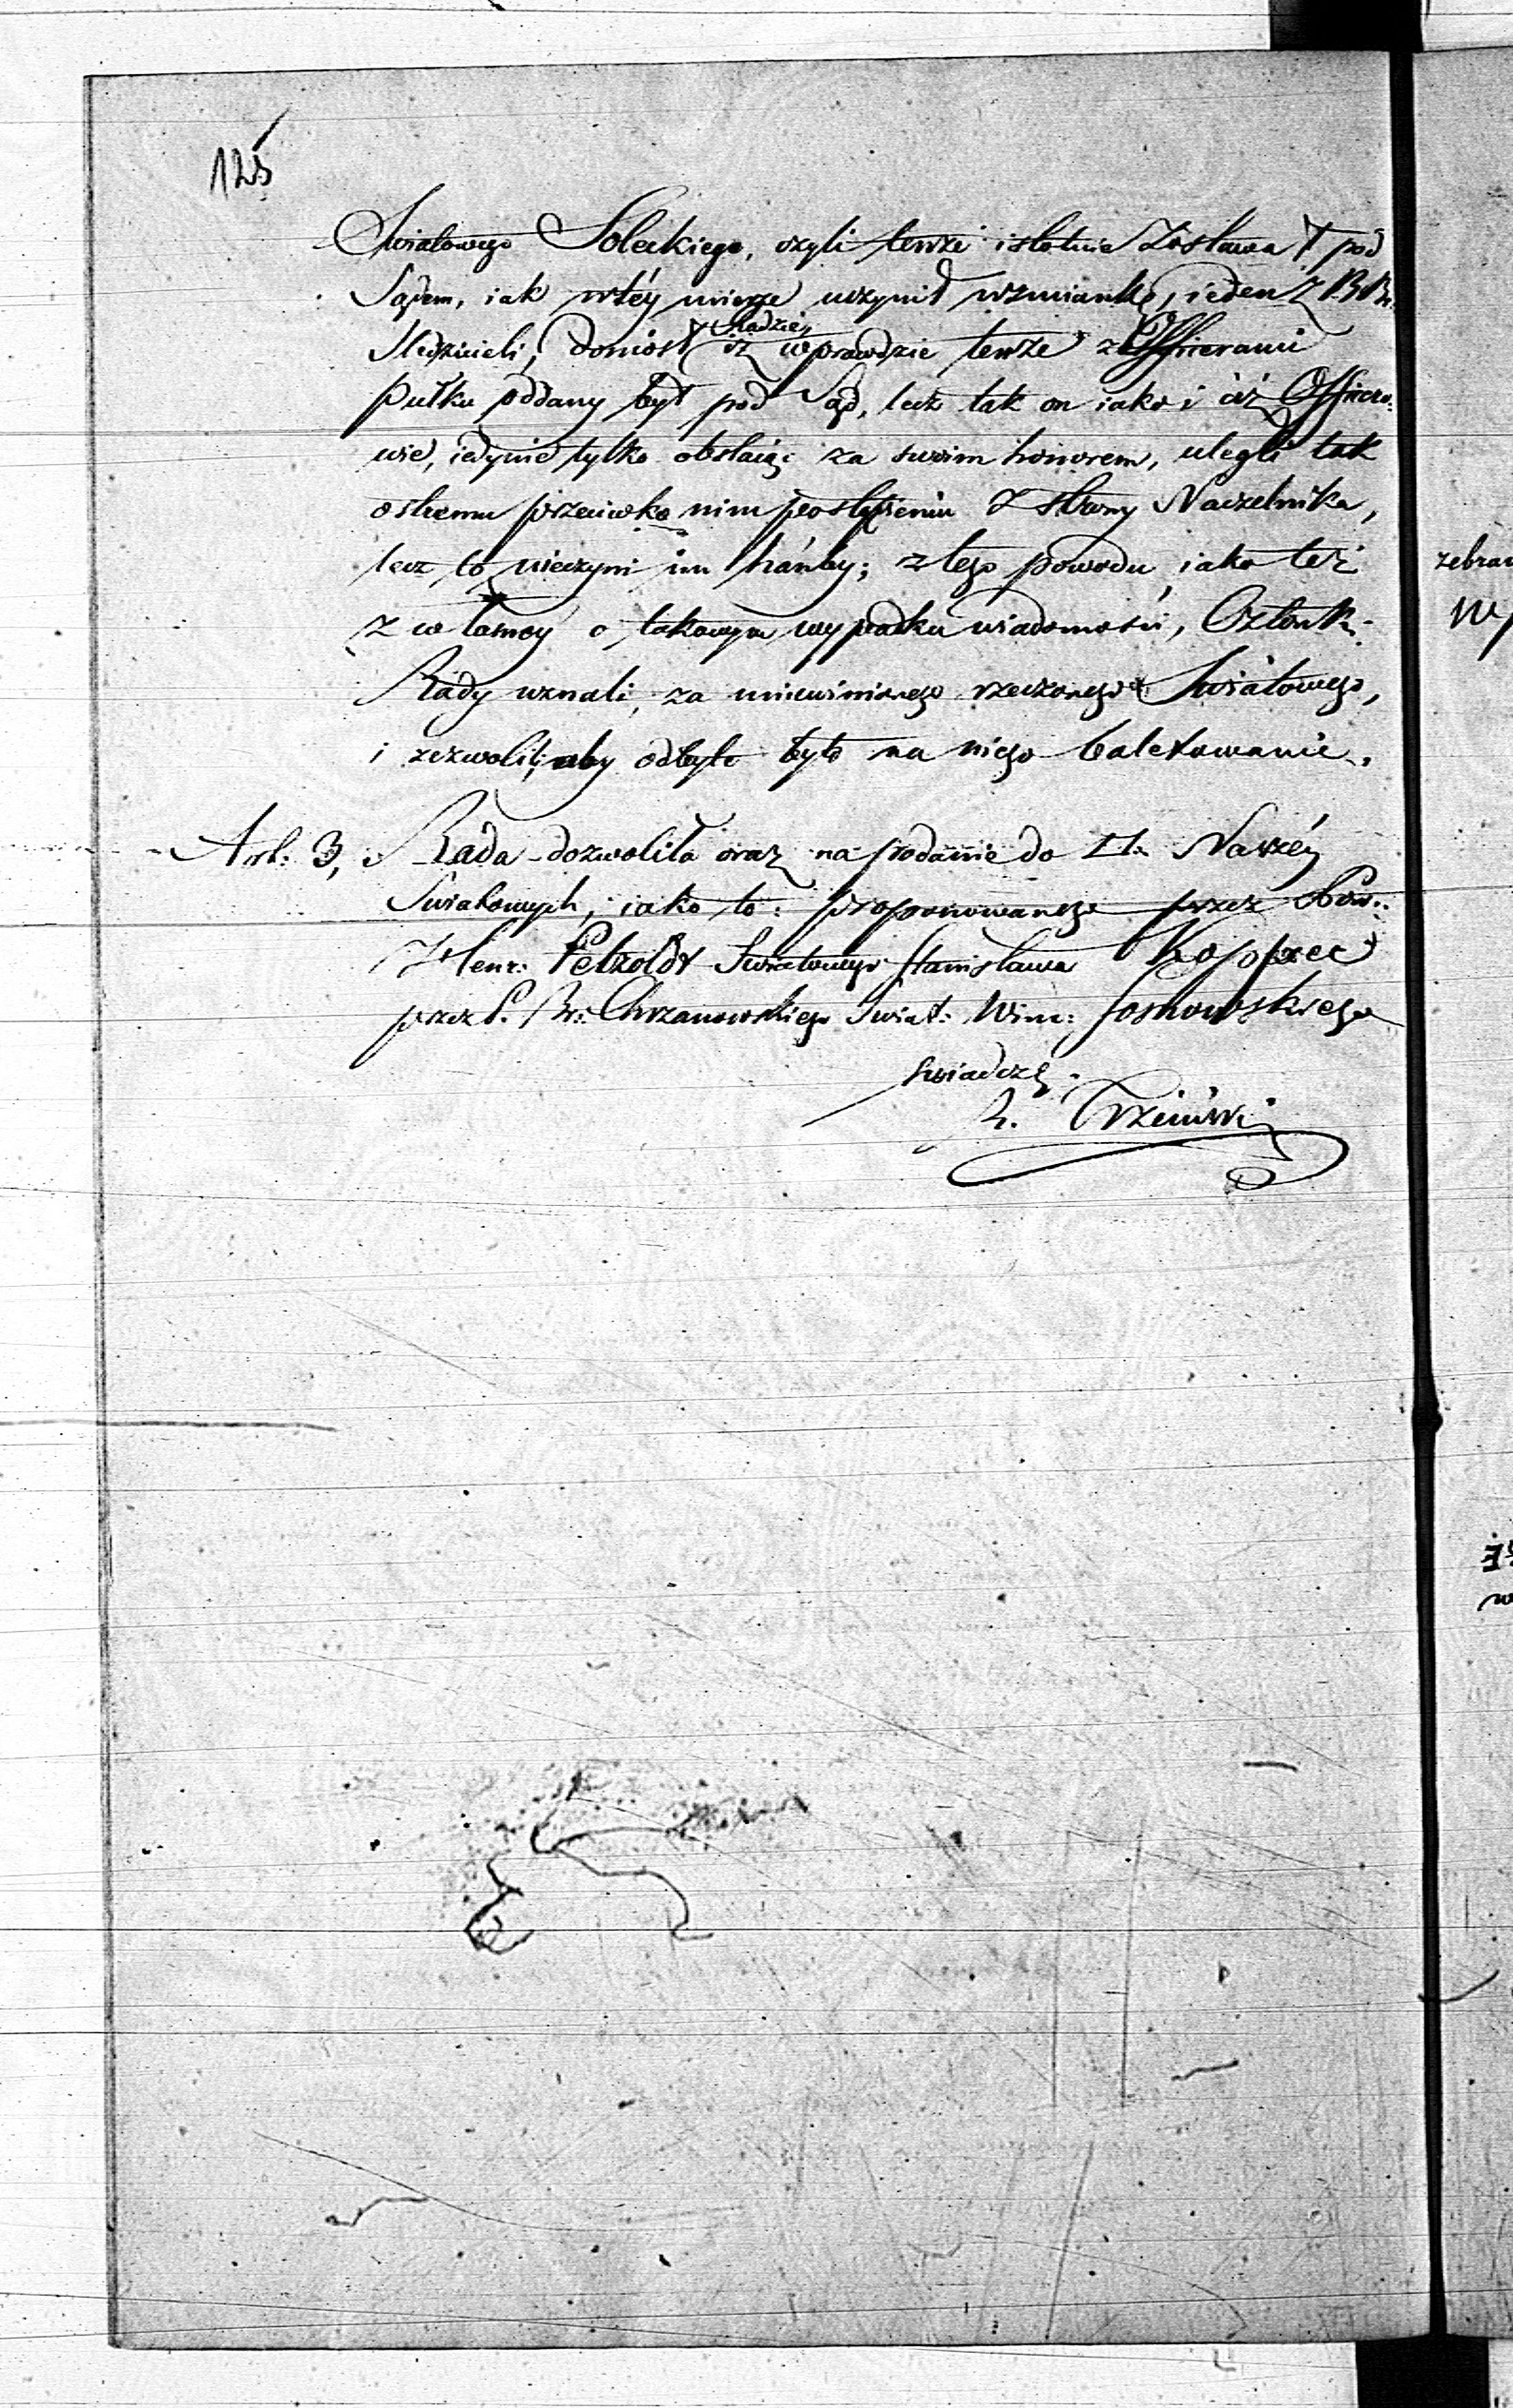 125
Swiatowego Soleckiego, czyli tenże istotnie Zostawał pod
Sądem, iak wtéy mierze uczynił wzmiankę, ieden z BrBr.
Sledzicieli, doniosł Radzie, iż wprawdzie tenże z Officerami
Pułku oddany był pod Sąd, lecz tak on iako i ciż Officero-
wie, iedynie tylko obstaiąc za swoim honorem, ulegli tak
ostremu przeciwko nim postąpieniu z strony Naczelnika,
lecz to nieczyni im hańby; z tego powodu iako też
z własnéy o takowym wypadku wiadomości, Członk:
Rady uznali za uniewinionego rzeczonego Swiatowego,
i zezwolili, aby odbyte było na niego baletowanie.
Art: 3, Rada dozwoliła oraz na podanie do Naszéy
Swiatowych, iako to: proponowanego przez
Henr: Petzoldt Swiatowego Stanisława Koppec
przez P. Br: Chrzanowskiego Swiat: Winc: Sosnowskiego
Swiadczę
Trzciński
zebran